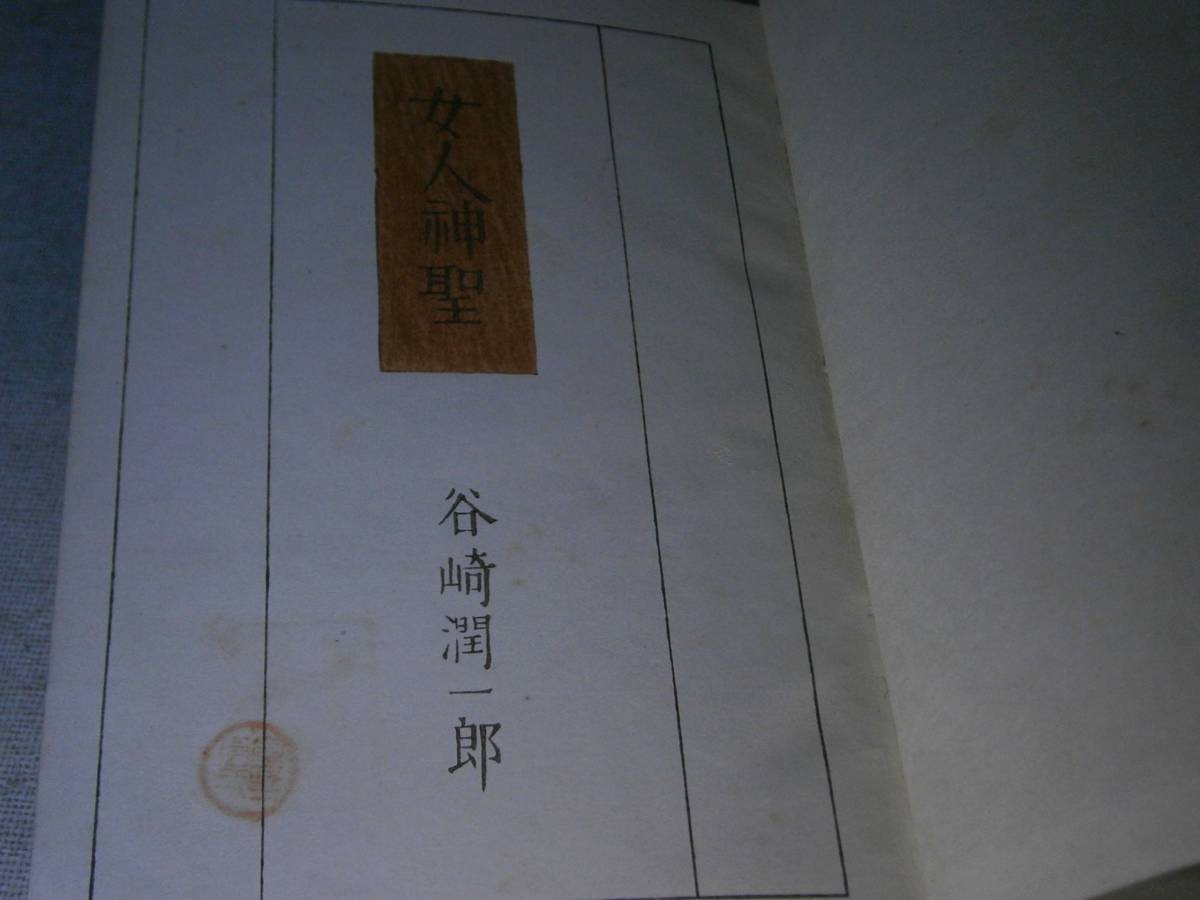 女人神聖
谷崎潤一郎